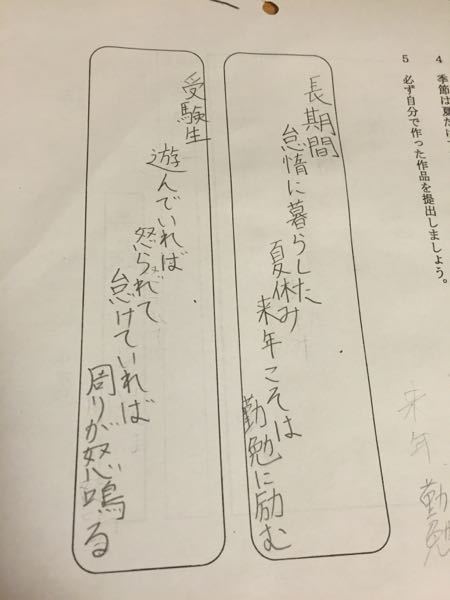 4 季節は夏だけ
5 必ず自分で作った作品を提出しましょう。
長期間
怠惰に暮らした
夏休み
来年こそは
勤勉に励む
受験生
遊んでいれば
怒られて
怠けていれば
周りが怒鳴る
来年 勤勉